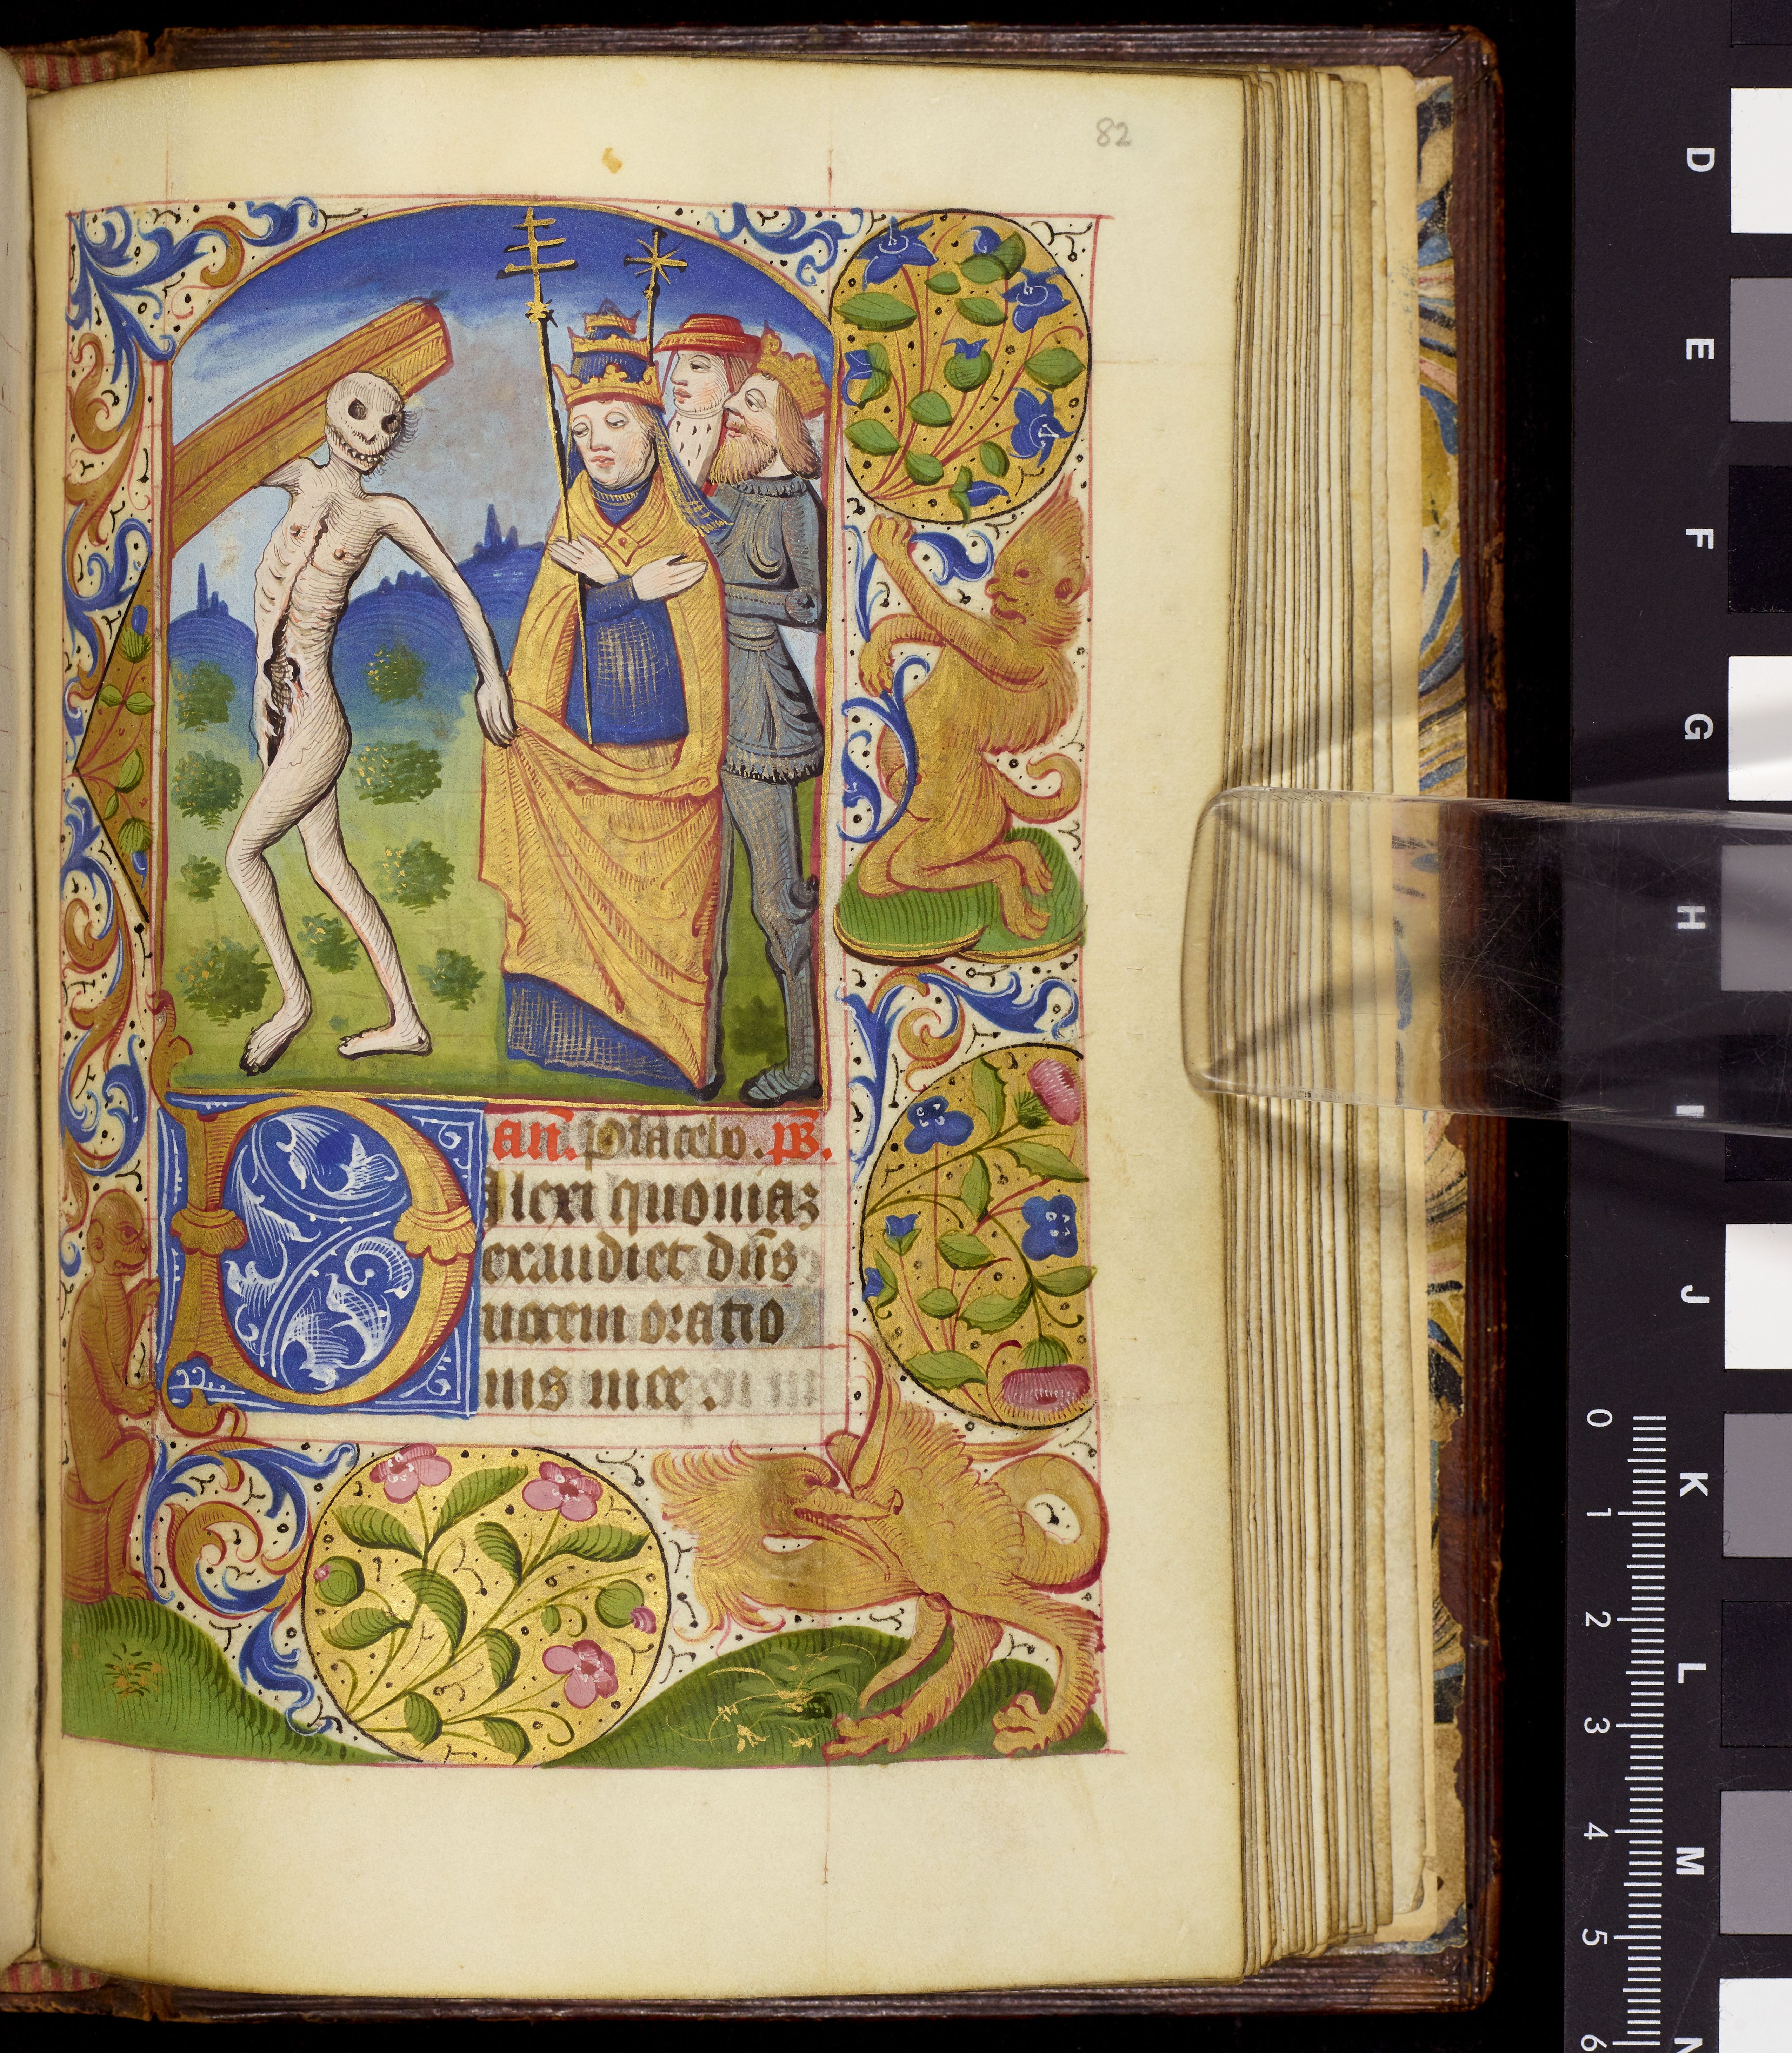 82
an̄. Placebo. p̄s.
Dilexi quoniaz
exaudiet dn̄s
uocem oratio
nis mee.
D
E
F
G
H
I
J
K
L
M
N
0
1
2
3
4
5
6